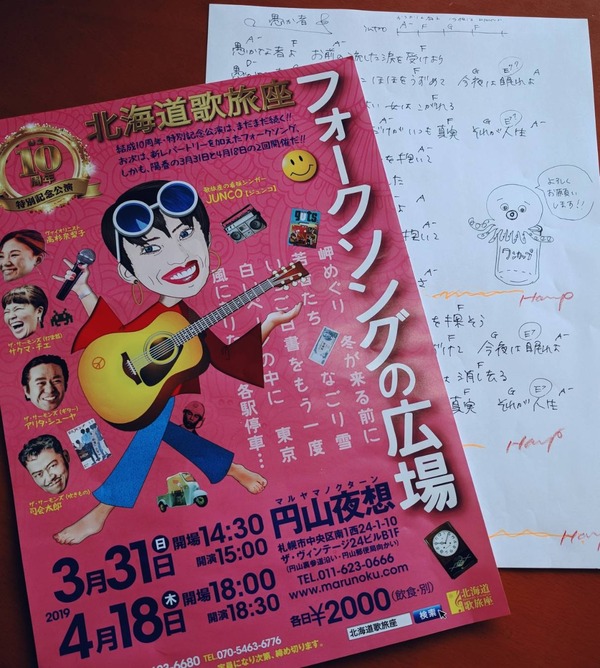 愚か者よ
intro
A- F A- F
愚かな者よ お前の流した涙を受けよう
ほほをうずめて 今夜は眠れよ
真実 それが人生
を抱いて
よろしく
お願い
します!!
ワンカップ
Harp
を探そう
今夜は眠れよ
は消し去る
真実 それが人生
Harp
Harp
北海道歌旅座
結成10周年・特別記念公演は、まだまだ続く!!
お次は、新レパートリーを加えたフォークソング。
しかも、陽春の3月31日と4月18日の2回開催だ!!
10
周年
特別記念公演
フォークソングの広場
歌旅座の看板シンガー
JUNCO [ジュンコ]
ヴァイオリニスト
高杉奈梨子
ザ・サーモンズ(打楽器)
サクマ・チエ
ザ・サーモンズ(ギター)
アリタ・シューヤ
ザ・サーモンズ(吹きもの)
司会太郎
guts
岬めぐり 冬が来る前に
なごり雪
いちご白書をもう一度
の中に 東京
各駅停車…
2019
3月31日(日) 開場14:30
開演15:00
4月18日(木) 開場18:00
開演18:30
マルヤマノクターン
円山夜想
札幌市中央区南1西24-1-10
ザ・ヴィンテージ24ビルB1F
(円山裏参道沿い・円山郵便局向かい)
TEL.011-623-0666
www.marunoku.com
各日¥2000(飲食・別)
北海道歌旅座 検索
北海道
歌旅座
6680 TEL 070-5463-6776
定員になり次第、締め切ります。